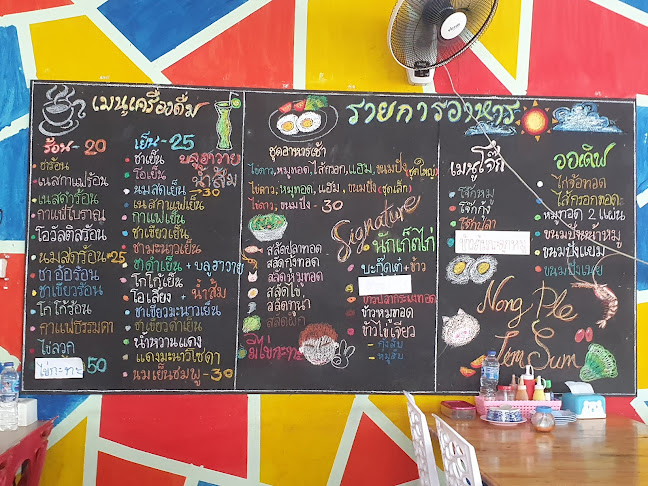 เมนูเครื่องดื่ม
ร้อน - 20
ชาร้อน
เนสกาแฟร้อน
เนสดำร้อน
กาแฟโบราณ
โอวัลตินร้อน
นมสดร้อน #25
ชาเขียวร้อน
โกโก้ร้อน
กาแฟธรรมดา
ไข่ลวก
ไข่กะทะ 50
เย็น - 25
ชาเย็น
โอเลี้ยง
นมสดเย็น - 30
เนสกาแฟเย็น
กาแฟเย็น
ชาเขียวเย็น
ชามะนาวเย็น
ชาดำเย็น + บลูฮาวาย
โกโก้เย็น
โอเลี้ยง + น้ำส้ม
ชาเขียวมะนาวเย็น
ชาเขียวดำเย็น
น้ำหวานแดง
แดงมะนาวโซดา
นมเย็นชมพู - 30
บลูฮาวาย
น้ำส้ม
รายการอาหาร
ชุดอาหารเช้า
ไข่ดาว, หมูทอด, ไส้กรอก, แฮม, ขนมปัง (ชุดใหญ่)
ไข่ดาว, หมูทอด, แฮม, ขนมปัง (ชุดเล็ก)
ไข่ดาว, ขนมปัง - 30
Signature
สลัดปลาทอด
สลัดกุ้งทอด
สลัดหมูทอด
สลัดไข่
สลัดทูน่า
สลัดผัก
มีไข่กะทะ
นักเก็ตไก่
บะกุ๊ดเต๋ + ข้าว
ข้าวปลากระพงทอด
ข้าวหมูทอด
ข้าวไข่เจียว
- กุ้งสับ
- หมูสับ
เมนูโจ๊ก
โจ๊กหมู
โจ๊กกุ้ง
โจ๊กปลา
ออเดิฟ
ไก่จ๊อทอด
ไส้กรอกทอด
หมูทอด 2 แผ่น
ขนมปังหน้าหมู
ขนมปังแยม
ขนมปังเนย
Nong Ple
&
Tem Sum